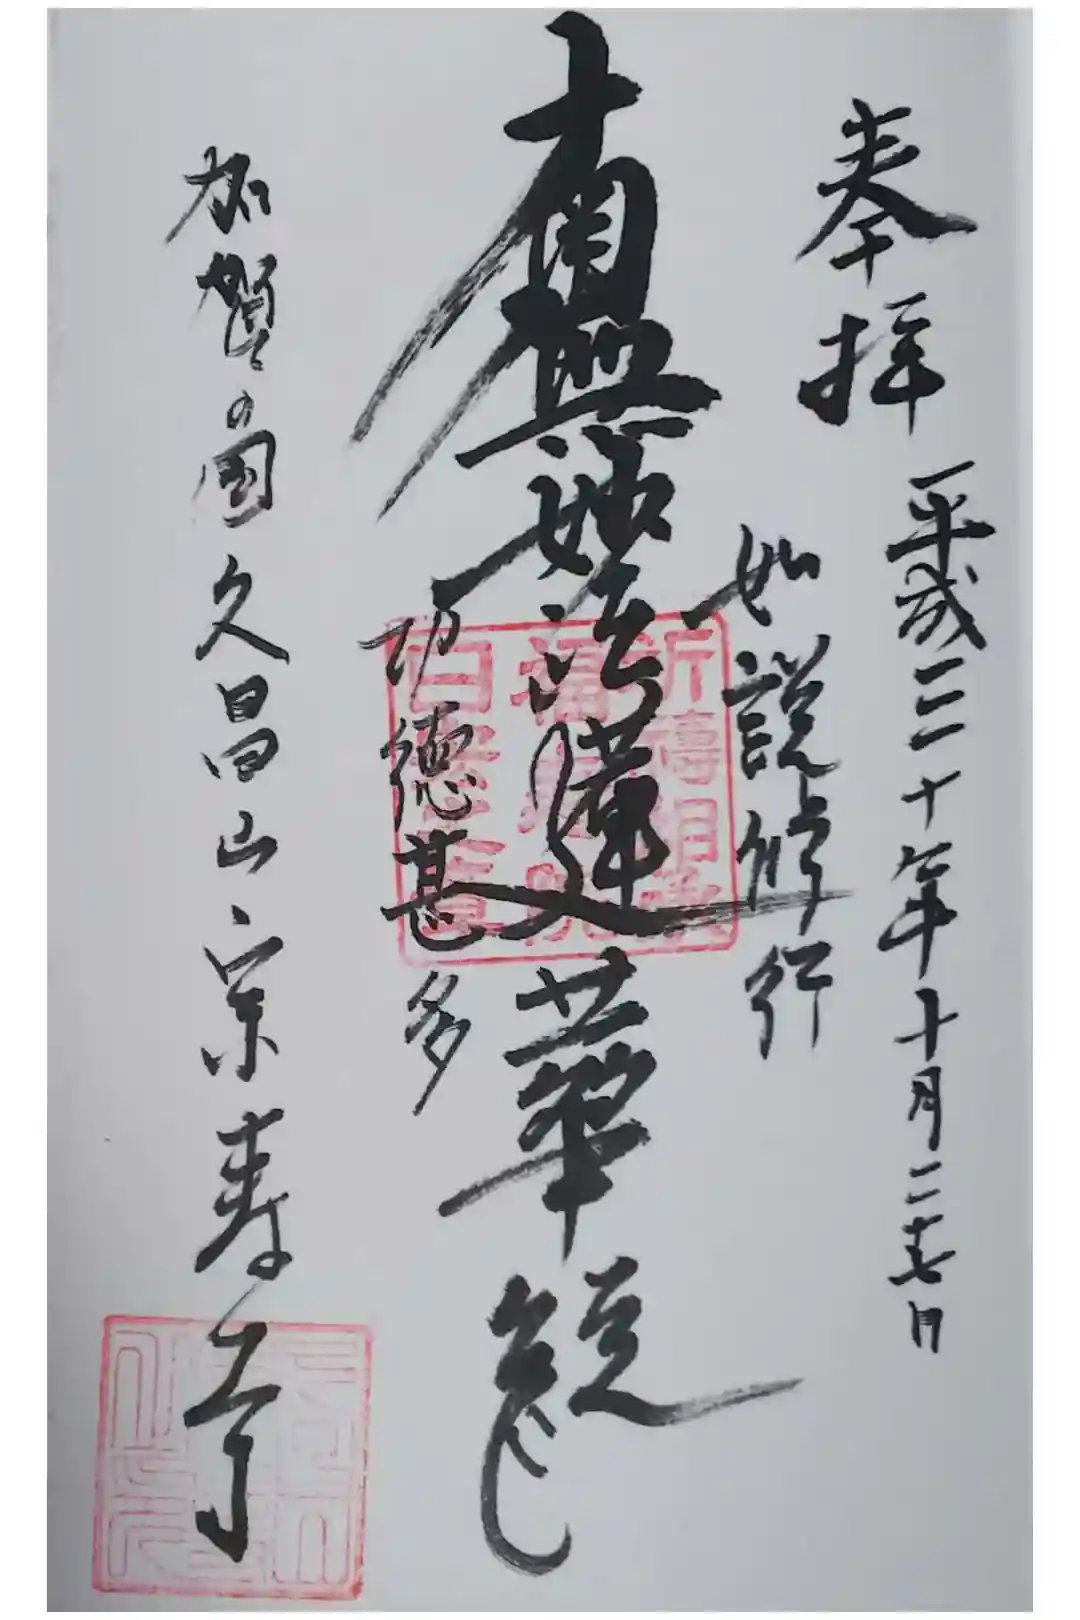 奉拝
平成三十年十月二十七日
如説修行
南無妙法蓮華経
功徳甚多
加賀の國久昌山宗寿寺